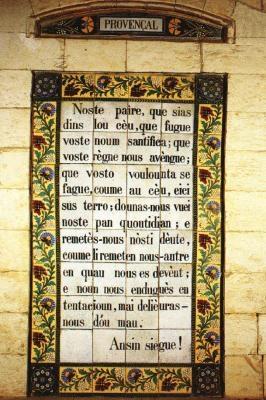 PROVENÇAL
Noste paire, que sias
dins lou cèu, que fugue
voste noum santifica; que
voste règne nous avèngue;
que vosto voulounta se
fague, coume au cèu, eici
sus terro; dounas-nous vuei
noste pan quoutidian; e
remetès-nous nòsti dèute,
coume li remeten nous-autre
en quau nous es devènt;
e noun nous endugués en
tentacioun, mai delièuras-
nous dóu mau.
Ansin siegue!